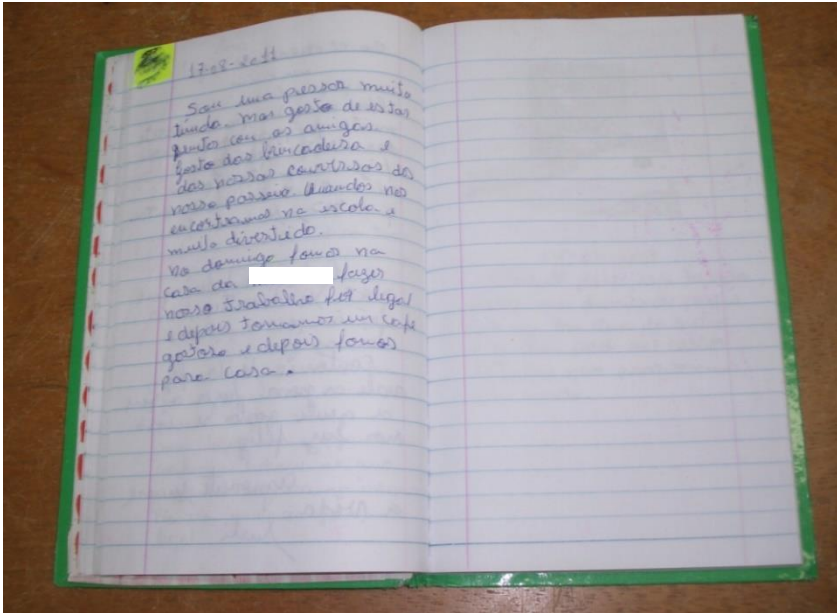 17-08-2011
Sou uma pressoa muito
timda. mas gosto de estar
juntos com as amigas.
gosto das brincadeira e
das nossas conversas dos
nosso passeio. Quandos nos
encontramos na escola e
muito divertido.
No domingo fomos na
casa da fazer
nosso trabalho foi legal
e depois tomamos um cafe
gostoso e depois fomos
para casa.